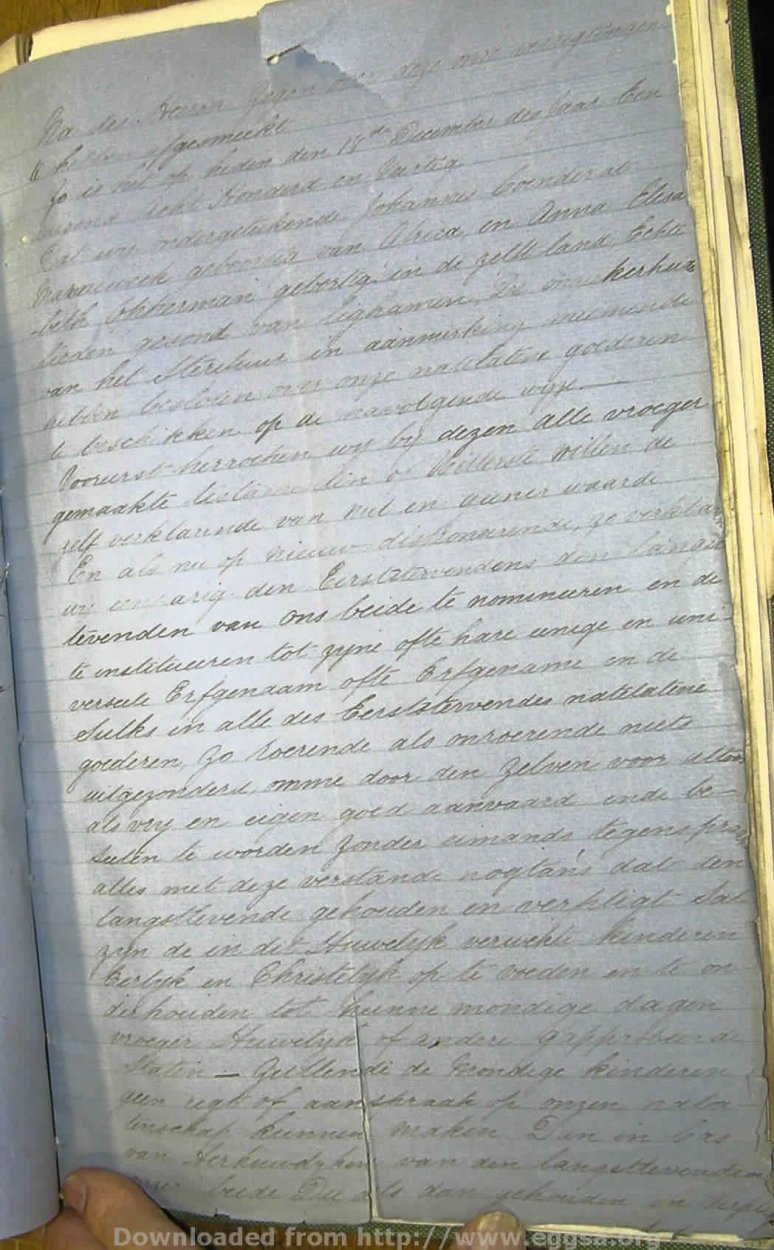 Na des Heeren Zegen over deze onse verrigtingen
te hebben afgesmeekt
Zo is het op heden den 18de December des Jaar Een
duisend acht Honderd en Veertig
Dat wij ondergetekende Johannes Coenderad
geboortig van Africa en Anna Elisa
beth Okkerman geboortig in de zelfde land Echte
lieden gezond van lighamen Die
van het Sterfuur in aanmerking neemende
hebben besloten over onze natelatene goederen
te beschikken op de navolgende wijze.
Vooreerst herroepen wij by dezen alle vroeger
gemaakte testamenten of Uitterste willen de
self verklarende van nul en geener waarde
En als nu op nieuw disponerende, zo verklar
wij den Eerststervendens den langst
levenden van ons beide te nomineeren en de
te institueeren tot zyne ofte hare eenige en uni
verseele Erfgenaam ofte Erfgename en de
Sulks in alle des Eerststervendes natelatene
goederen, Zo roerende als onroerende niets
uitgezonderd omme door den Zelven voor altoos
als vry en eigen goed aanvaard ende be-
seten te worden Zonder iemands tegenspraak
alles met deze verstande nogtans dat den
langstlevende gehouden en verpligt Sal
zyn de in det Huwelyk verwekte kinderen
Eerlyk en Christelyk op te voeden en te on
derhouden tot hunne mondige dagen
vroeger Huwelyk of andere gapprobeerde
Staten — Zullende de Mondige kinderen
geen regt of aanspraak op onzen nala
tenschap kunnen maken Dan in Cas
van Herhuwelyken van den langstlevenden
beide Die als dan gehouden en verpligt
Downloaded from http://www.eggsa.org